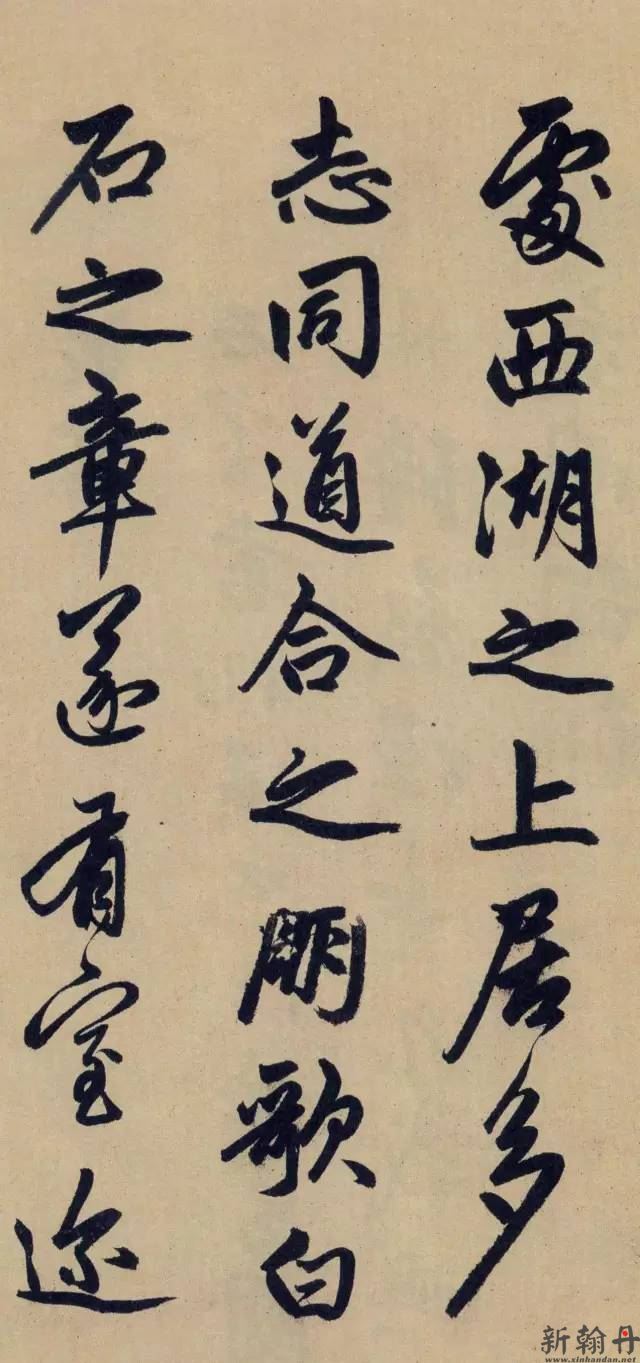 處西湖之上居多
志同道合之朋歌白
石之章遂有室迩
新翰丹
www.xinhandan.net